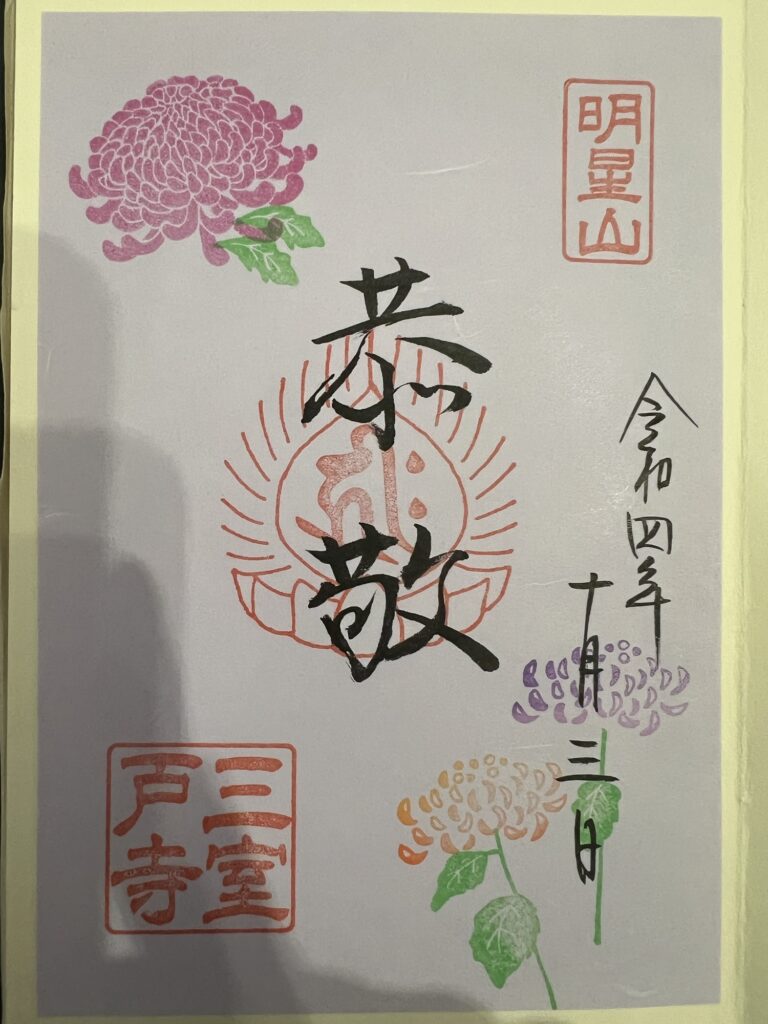 明星山
令和四年
十月三日
恭敬
三室
戸寺